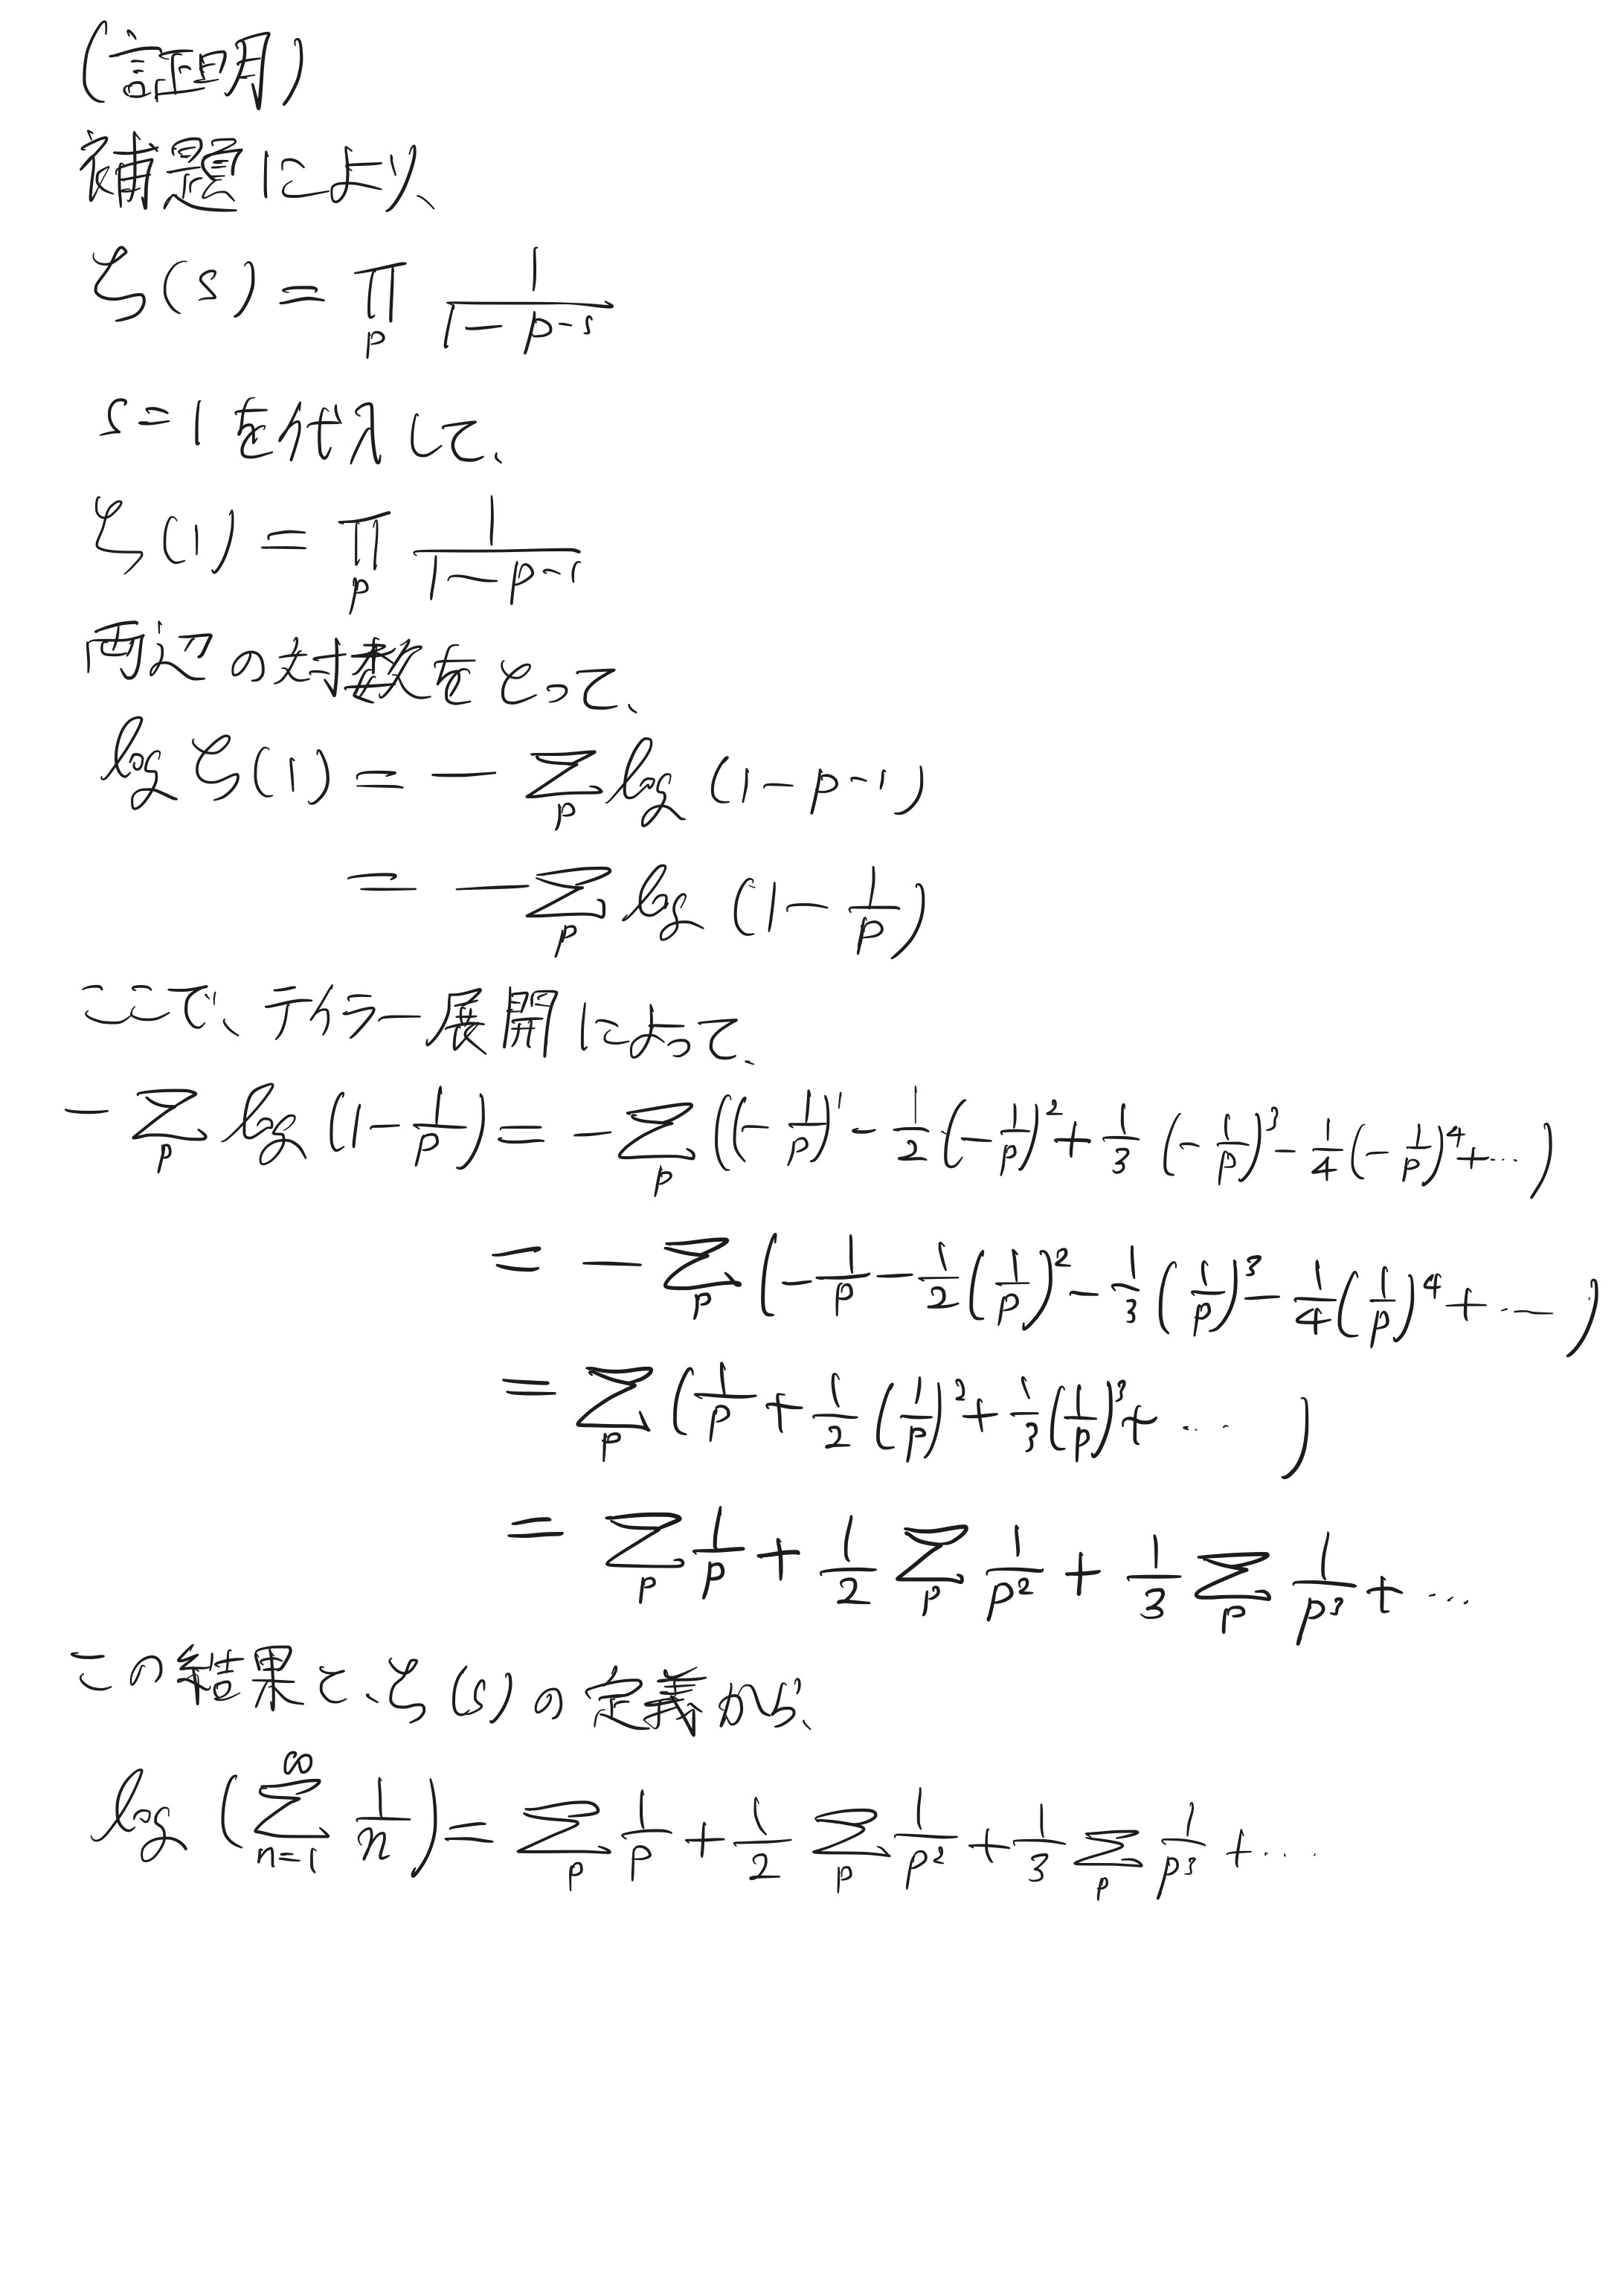 (証明)
補題により、
ζ(s) = ∏_p 1/(1 - p^{-s})
s=1を代入して、
ζ(1) = ∏_p 1/(1 - p^{-1})
両辺の対数をとって、
log ζ(1) = - ∑_p log (1 - p^{-1})
= - ∑_p log (1 - 1/p)
ここで、テイラー展開によって、
- ∑_p log (1 - 1/p) = - ∑_p ((-1/p)^1 - 1/2 (-1/p)^2 + 1/3 (-1/p)^3 - 1/4 (-1/p)^4 + ...)
= - ∑_p (- 1/p - 1/2 (1/p)^2 - 1/3 (1/p)^3 - 1/4 (1/p)^4 + ...)
= ∑_p (1/p + 1/2 (1/p)^2 + 1/3 (1/p)^3 + ...)
= ∑_p 1/p + 1/2 ∑_p 1/p^2 + 1/3 ∑_p 1/p^3 + ...
この結果と、ζ(s)の定義から、
log (∑_{n=1}^∞ 1/n) = ∑_p 1/p + 1/2 ∑_p 1/p^2 + 1/3 ∑_p 1/p^3 + ...